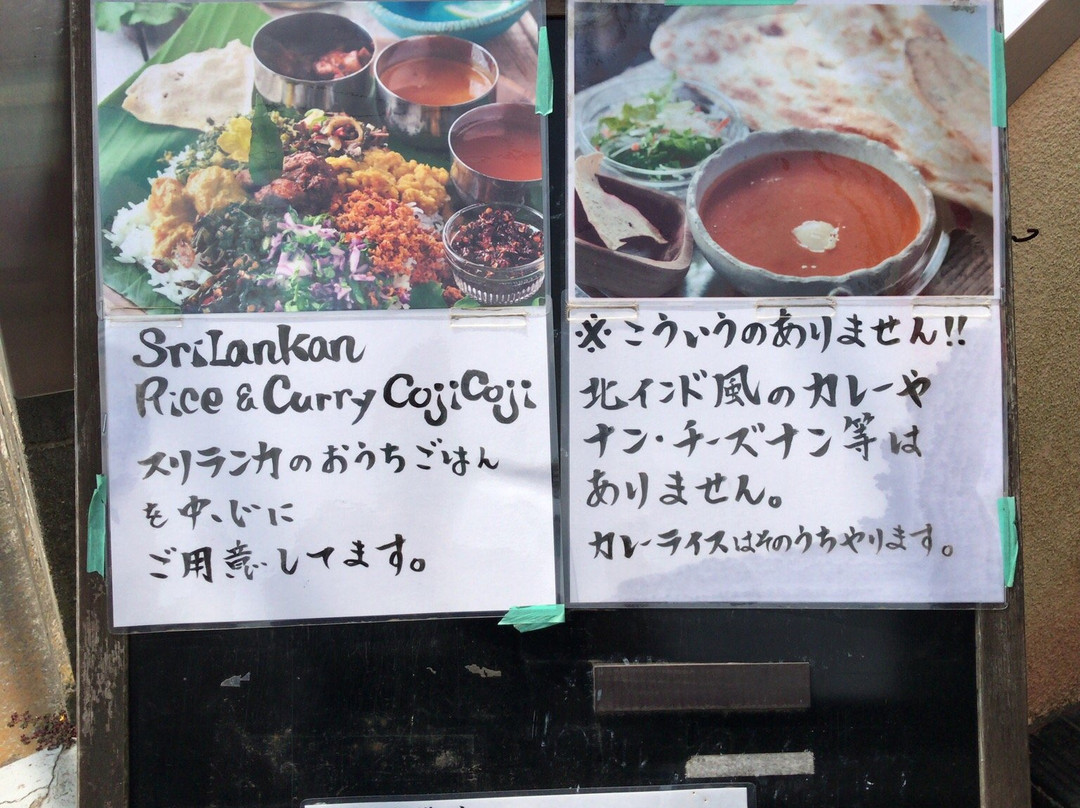 SriLankan
Rice & Curry CojiCoji
スリランカのおうちごはん
を中心に
ご用意してます。
※こういうのありません!!
北インド風のカレーや
ナン・チーズナン等は
ありません。
カレーライスはそのうちやります。